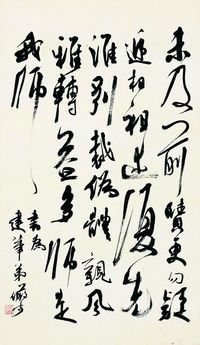 未及前賢更勿疑
遞相祖述復先
誰別裁偽體親風
雅轉益多師是
師
書為
建華弟